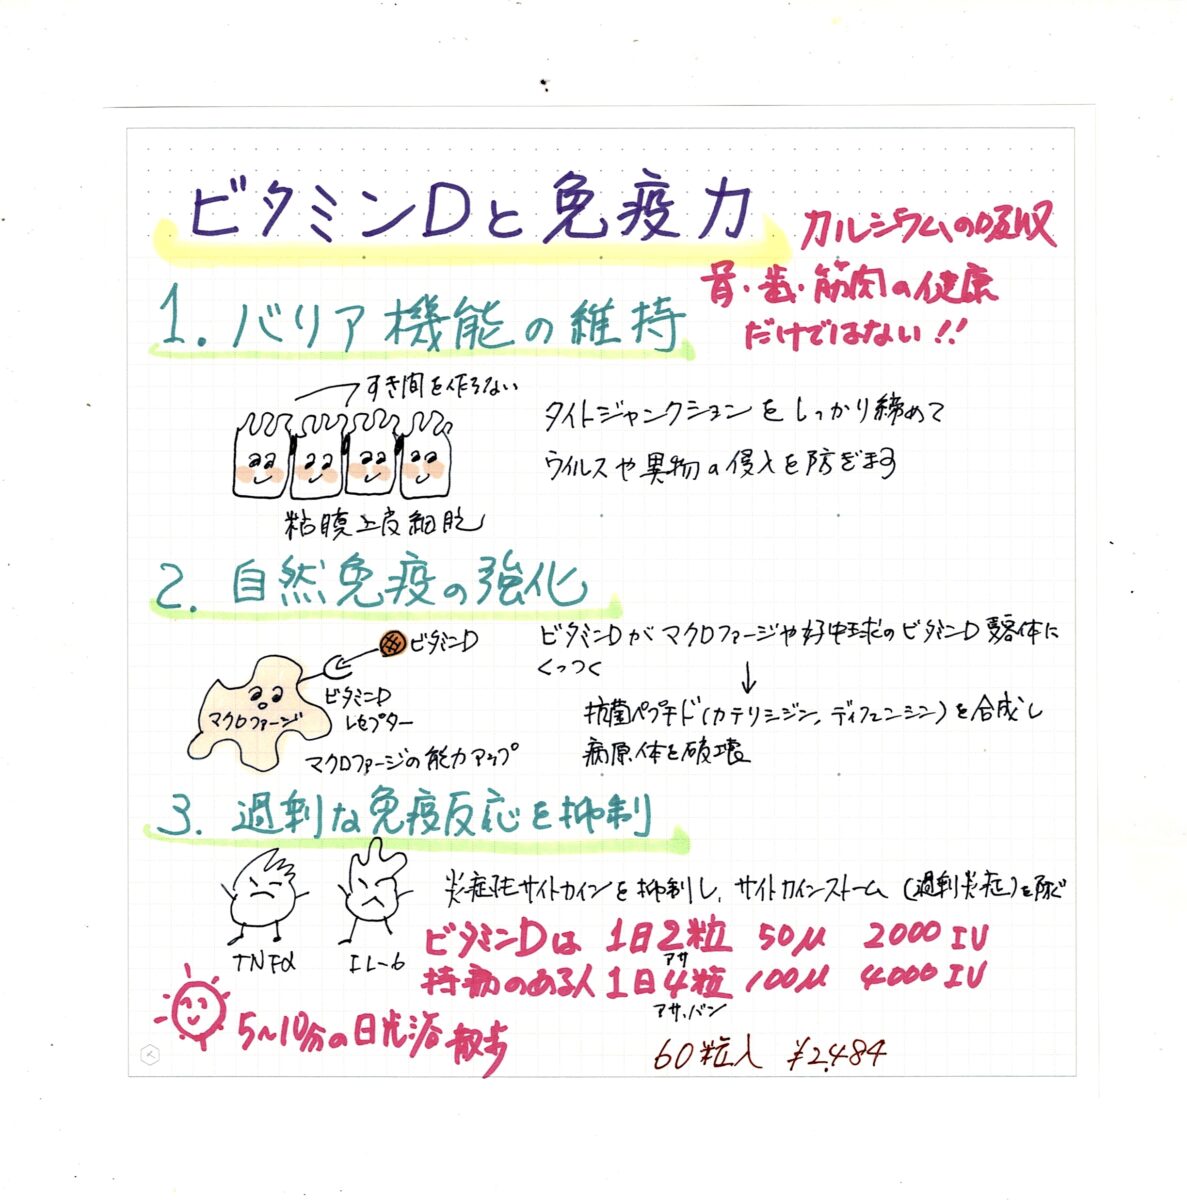 ビタミンDと免疫力
カルシウムの吸収
骨・歯・筋肉の健康
だけではない!!
1. バリア機能の維持
すき間を作らない
タイトジャンクションをしっかり締めて
ウイルスや異物の侵入を防ぎます
粘膜上皮細胞
2. 自然免疫の強化
ビタミンD
ビタミンDがマクロファージや好中球のビタミンD受容体に
くっつく
↓
ビタミンD
レセプター
マクロファージ
抗菌ペプチド(カテリシジン, ディフェンシン)を合成し
病原体を破壊
マクロファージの能力アップ
3. 過剰な免疫反応を抑制
炎症性サイトカインを抑制し, サイトカインストーム(過剰炎症)を防ぐ
TNFα
IL-6
ビタミンDは 1日2粒 50μ 2000IU
アサ
持病のある人 1日4粒 100μ 4000IU
アサ、バン
5〜10分の日光浴 散歩
60粒入 ¥2,484